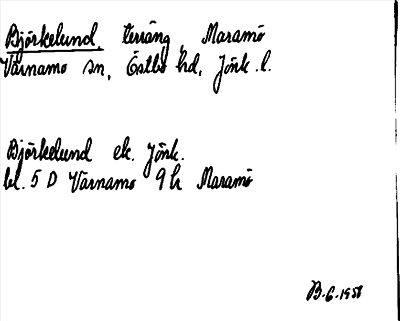 Björkelund, terräng, Maramö
Värnamo sn, Östbo hd, Jönk. l.
Björkelund ek. Jönk.
bl. 5 D Värnamo 9 h Maramö
B. 6. 1958